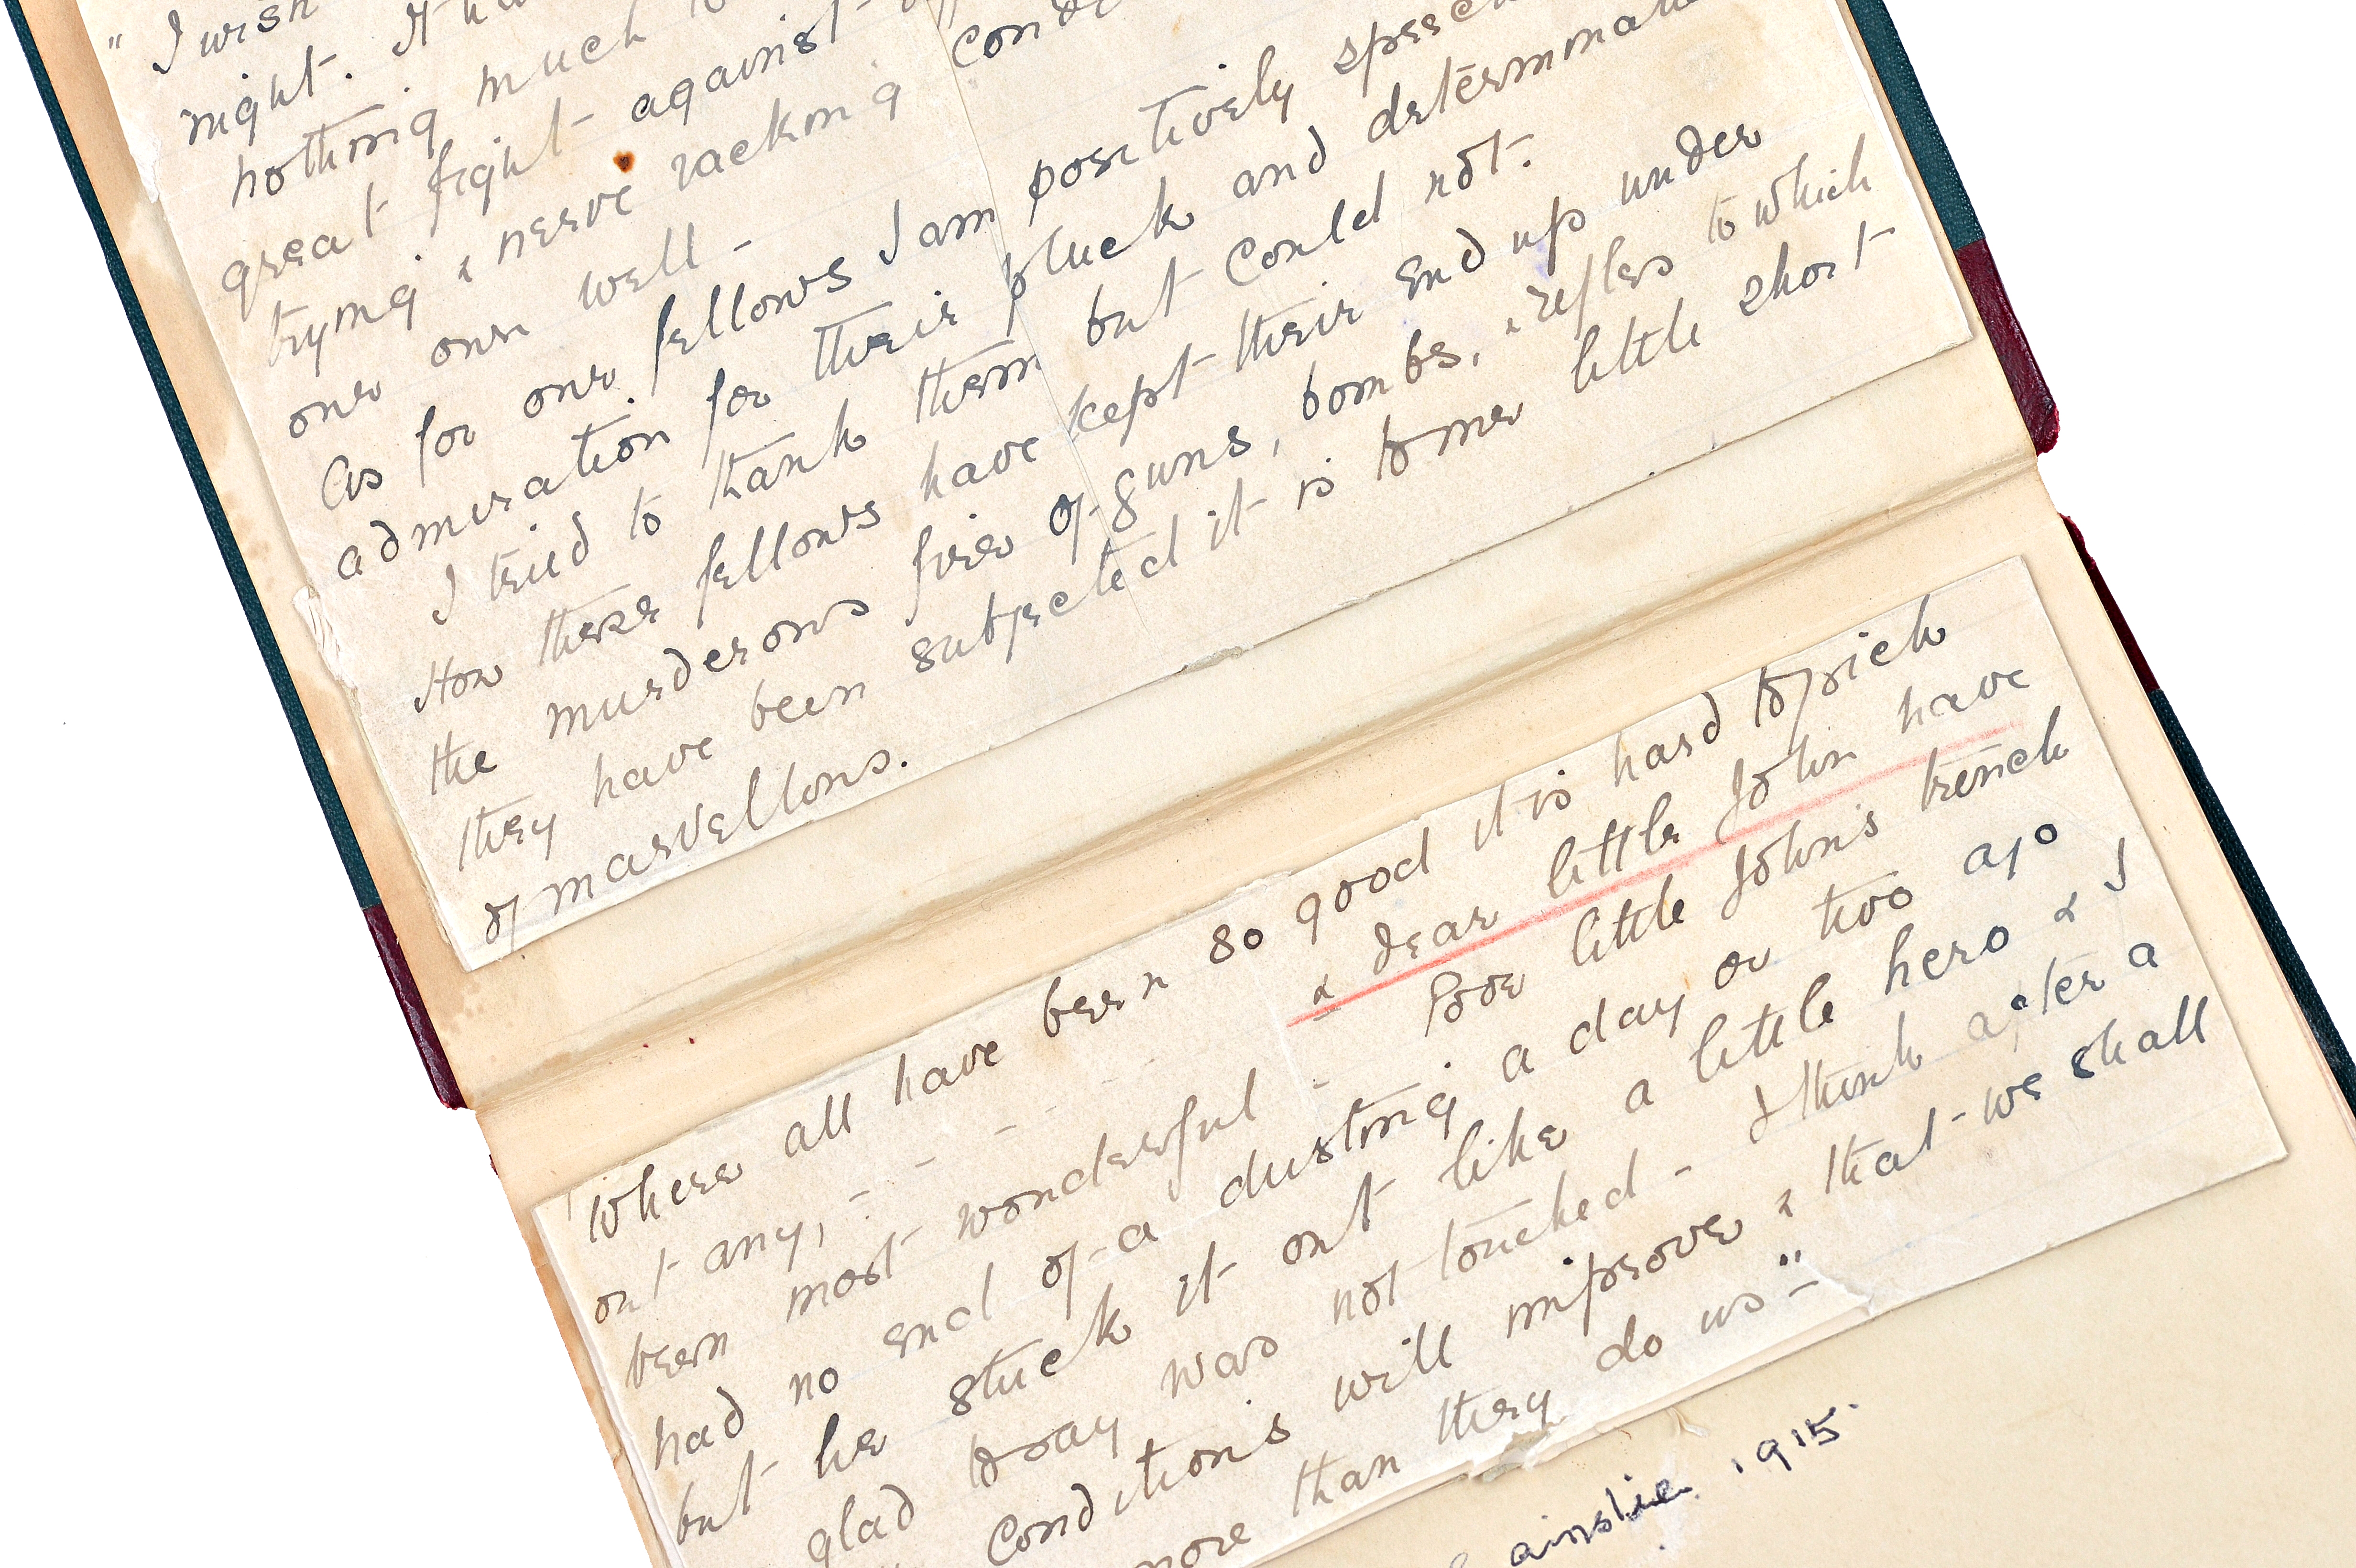 " I wish
night. It
nothing much
great fight against
trying & nerve racking
our own well -
As for our fellows I am positively
admiration for their pluck and
I tried to thank them but could not.
How these fellows have kept their end up under
the murderous fire of guns, bombs, & rifles to which
they have been subjected it is to me little short
of marvellous.
Where all have been so good it is hard to pick
out any, - - - - - & dear little John have
been most wonderful - Poor little John's trench
had no end of a dusting a day or two ago
but he stuck it out like a little hero & I
glad today was not touched - I think after a
conditions will improve & that we shall
more than they do us - "
ainslie 1915.